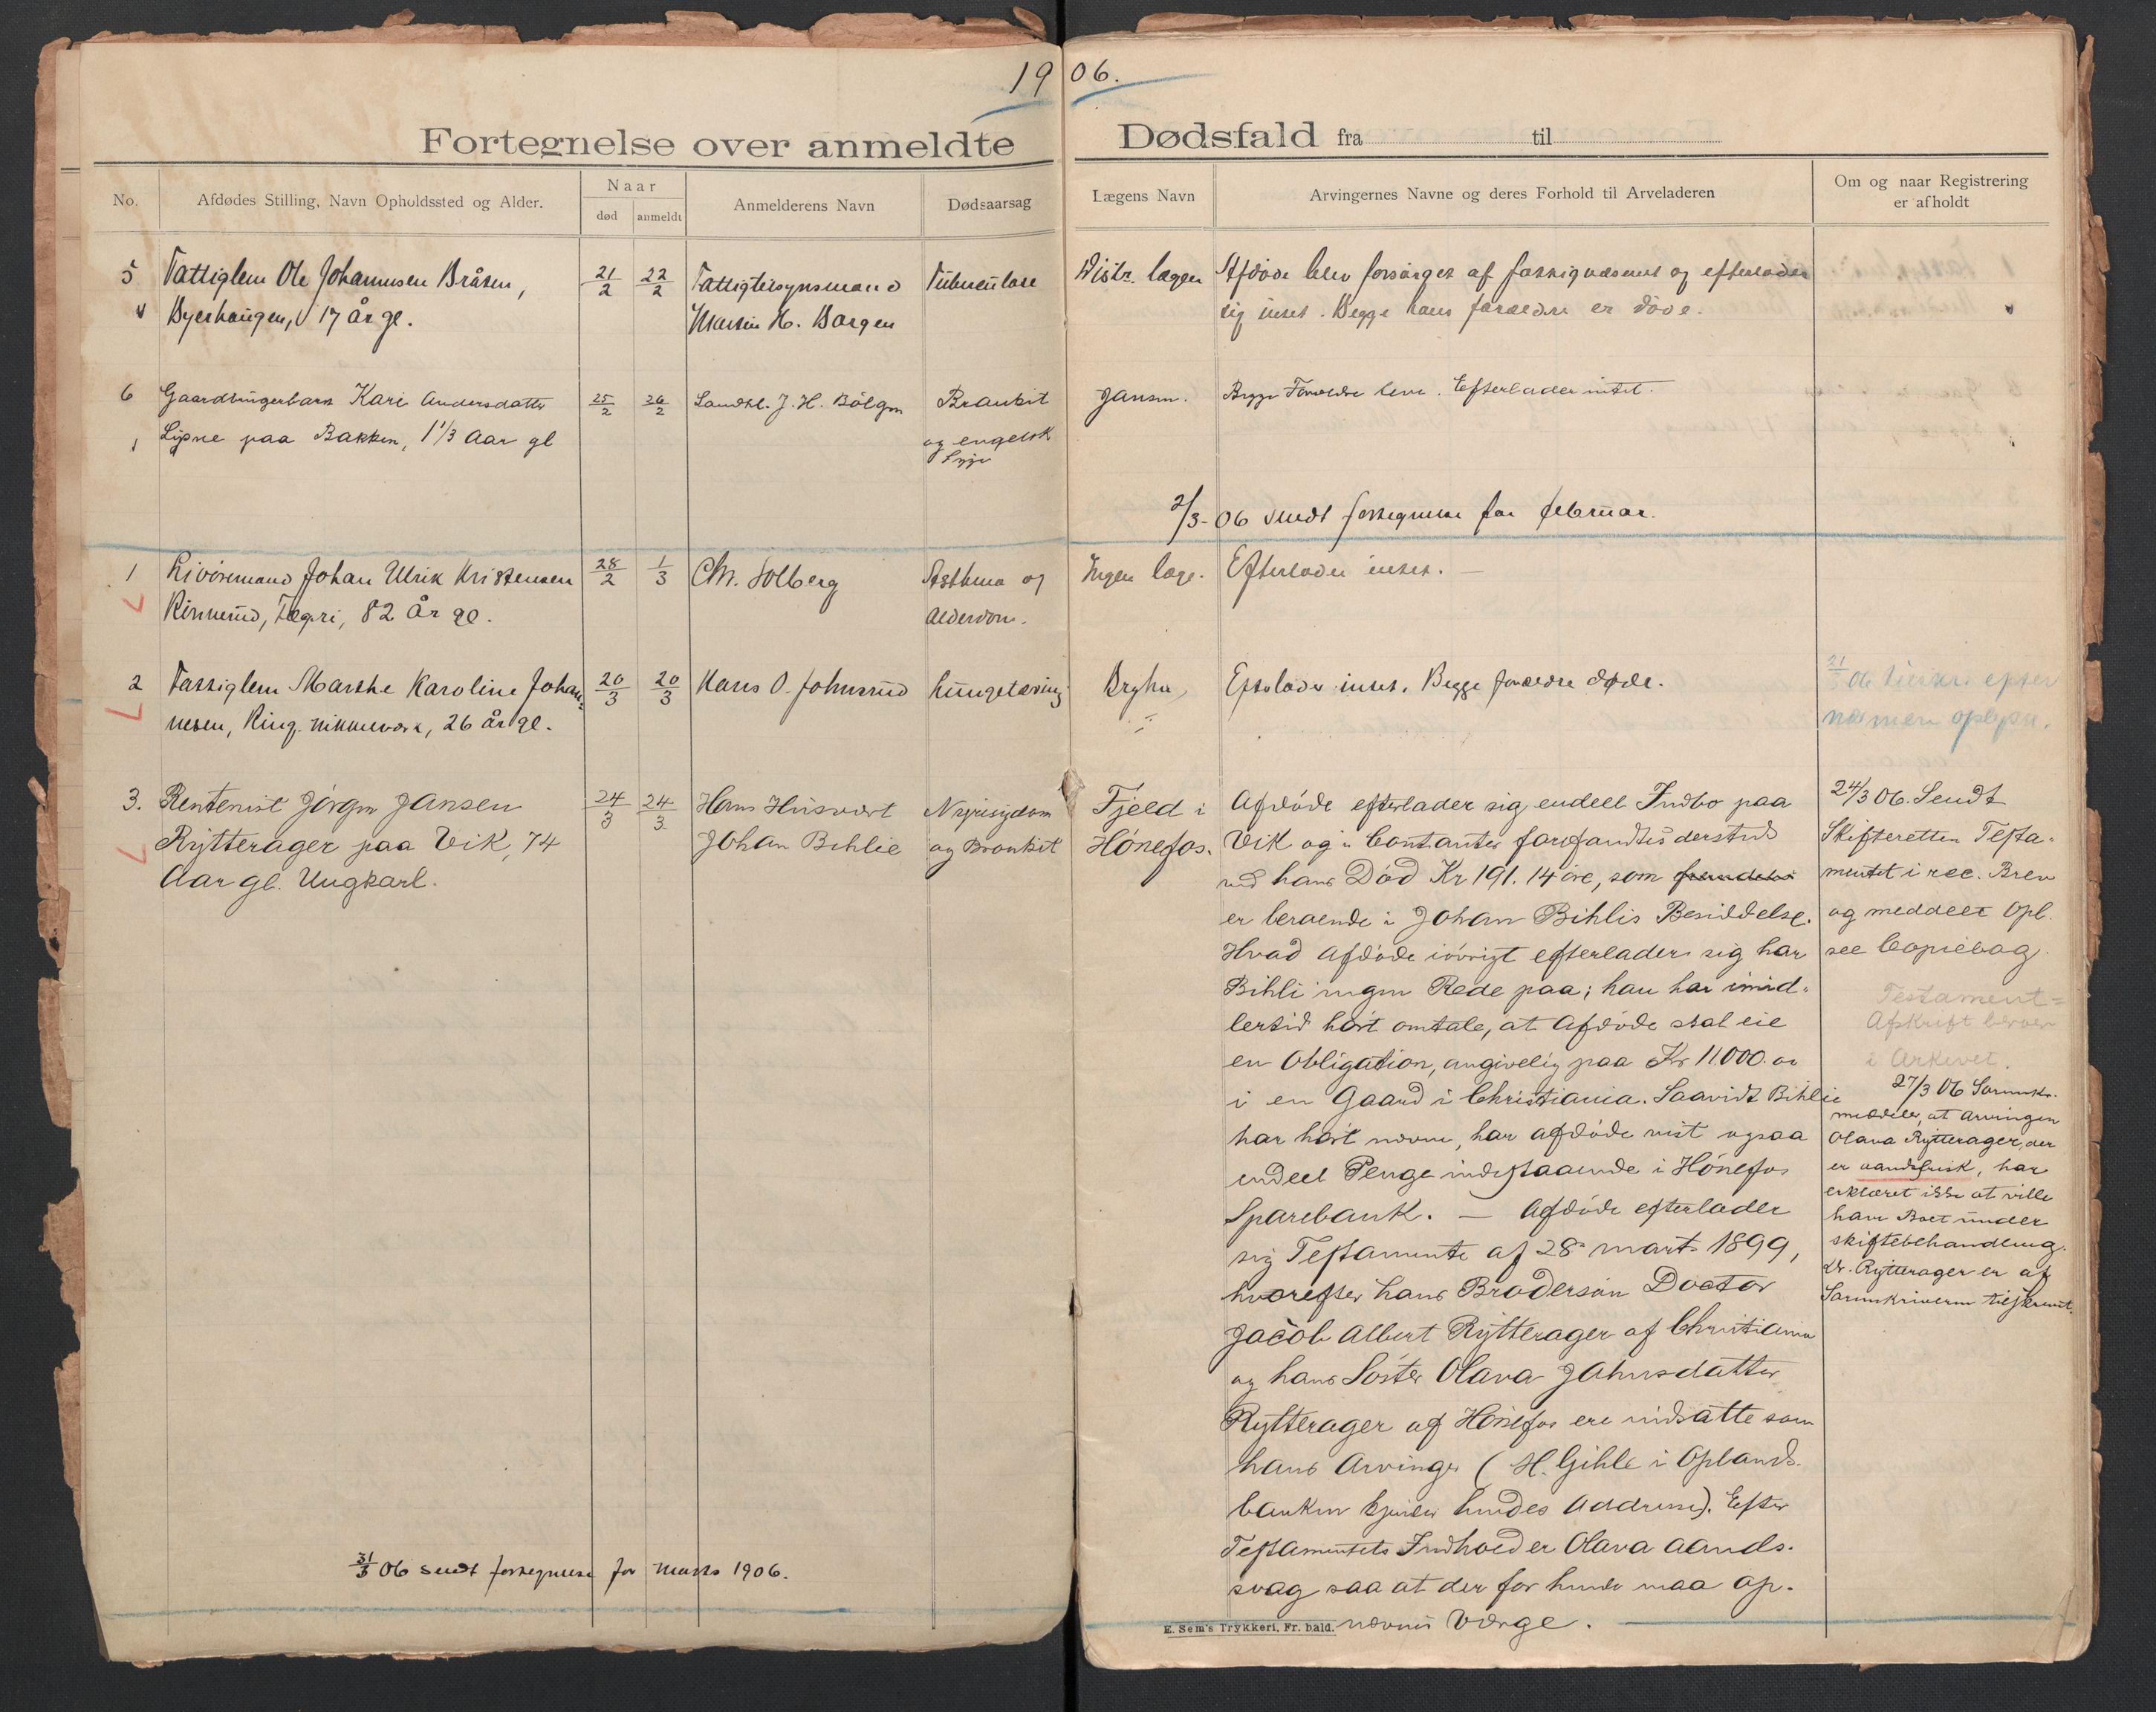 1906.
Fortegnelse over anmeldte Dødsfald fra til
No.
Afdødes Stilling, Navn Opholdssted og Alder.
Naar
død
anmeldt
Anmelderens Navn
Dødsaarsag
Lægens Navn
Arvingernes Navne og deres Forhold til Arveladeren
Om og naar Registrering
er afholdt
5
Fattiglem Ole Johannesen Bråten,
Byerhaugen, 17 år gl.
21/2
22/2
Fattigtilsynsmand
Martin H. Borgen
Tuberculose
Distr. lægen
Afdøde blev forsørget af fattigvæsenet og efterlader
sig intet. Begge hans forældre er døde.
6
Gaardbrugerbarn Kari Andersdatter
Lisne paa Bakken, 1 1/3 Aar gl
25/2
26/2
Landhl. J. H. Bölgen
Bronkit
og engelsk
Syge
Jansen.
Begge Forældre leve. Efterlader intet.
2/3-06 sendt fortegnelse for februar.
1
Livöremand Johan Ulrik Kristensen
Rinnerud, Tægri, 82 År gl.
28/2
1/3
Chr. Solberg
Asthma og
Alderdom.
Ingen læge.
Efterlader intet. —
2
Fattiglem Marthe Karoline Johan-
nesen, Ring. nikkelværk, 26 år gl.
20/3
20/3
Hans O. Johnsrud
Lungetæring
Bryhn
Efterlader intet. Begge forældre døde.
21/3 06 tilskr. efter
nærmere oplysn.
3.
Rentenist Jörgen Jansen
Rytterager paa Vik, 74
Aar gl. Ungkarl.
24/3
24/3
Hans Husvært
Johan Bihlie
Nyresygdom
og Bronkit
Fjeld i
Hönefos.
Afdöde efterlader sig endeel Indbo paa
Vik og i Contanter forefandtes dersteds
ved hans Död Kr 191. 14 öre, som
er beroende i Johan Bihlis Besiddelse.
Hvad Afdöde iövrigt efterlader sig har
Bihli ingen Rede paa; han har imid-
lertid hört omtale, at Afdöde skal eie
en Obligation, angivelig paa Kr 11000.00
i en Gaard i Christiania. Saavidt Bihlie
har hört nævne, har afdöde vist ogsaa
endeel Penge indestaaende i Hönefos
Sparebank. — Afdöde efterlader
sig Testamente af 28 marts 1899,
hvorefter hans Brodersön Doctor
Jacob Albert Rytterager af Christiania
og hans Söster Olava Jahnsdatter
Rytterager af Hönefos ere indsatte som
hans Arvinger (H. Gihle i Oplands-
banken kjender hendes Addresse). Efter
Testamentets Indhold er Olava aands-
svag saa at der for hende maa op-
nævnes Værge.
24/3 06. Sendt
Skifteretten Testa-
mentet i rec. Brev
og meddeelt Opl.
see Copiebog.
Testament-
Afskrift beroer
i Arkivet.
27/3 06 Sorenskr.
meddeler, at arvingen
Olava Rytterager, der
er aandsfrisk, har
erklæret ikke at ville
have Boet under
skiftebehandling.
Dr. Rytterager er af
Sorenskriveren tilskrevet.
31/3 06 sendt fortegnelse for marts 1906.
E. Sem's Trykkeri, Fr. hald.